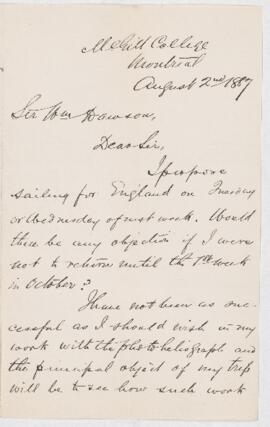 McGill College
Montreal
August 2nd 1887
Sir Wm Dawson,
Dear Sir,
I propose
sailing for England on Tuesday
or Wednesday of next week. Would
there be any objection if I were
not to return until the 1st week
in October?
I have not been as suc-
cessful as I should wish in my
work with the photoheliograph and
the principal object of my trip
will be to see how such work